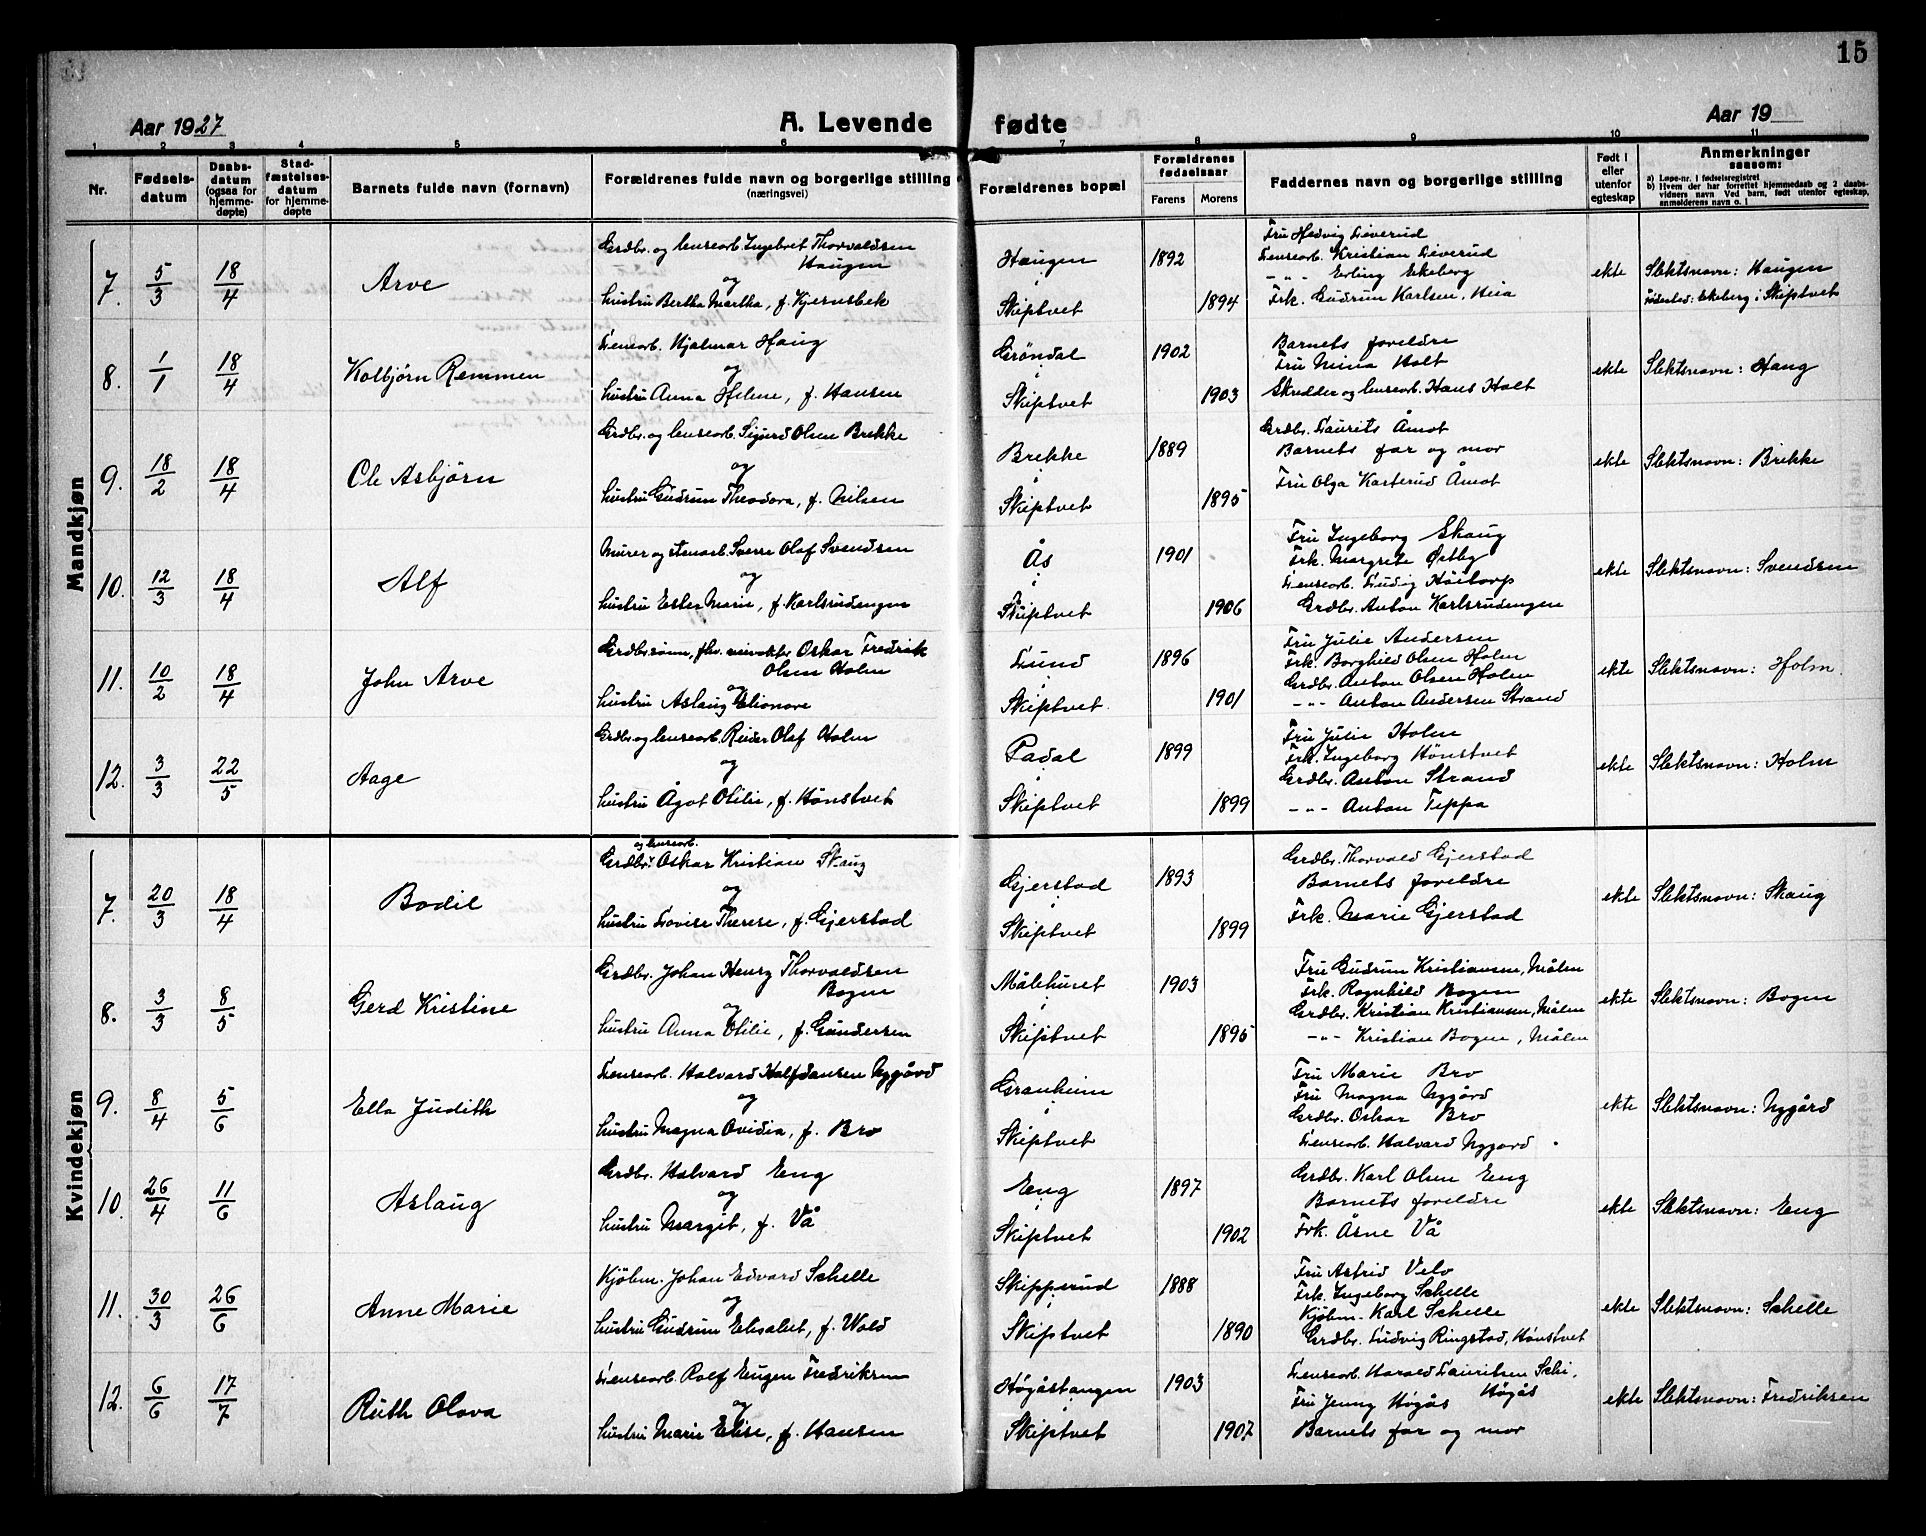 15
Aar 1927
A. Levende fødte
Aar 19
1 2 3 4 5 6 7 8 9 10 11
Nr.
Fødselsdatum
Daabsdatum (ogsaa for hjemmedøpte)
Stadfæstelsesdatum for hjemmedøpte
Barnets fulde navn (fornavn)
Forældrenes fulde navn og borgerlige stilling (næringsvei)
Forældrenes bopæl
Forældrenes fødselsaar
Farens Morens
Faddernes navn og borgerlige stilling
Født i eller utenfor egteskap
Anmerkninger saasom:
a) Løpe-nr. i fødselsregistret
b) Hvem der har forrettet hjemmedaab og 2 daabsvidners navn Ved barn, født utenfor egteskap, anmelderens navn o. l
Mandkjøn
7. 5/3 18/4 Arve
Grdbr. og lenseorb. Ingebret Thorvaldsen
Haugen
og
hustru Bertha Martha, f. Kjernsbek
Haugen
i
Skiptvet
1892
1894
Fru Hedvig Liverud
Lenseorb. Kristian Liverud
-"- Erling Ekeberg
Frk. Gudrun Karlsen, Heia
ekte
Slektsnavn: Haugen
Fødested: Ekeberg i Skiptvet
8. 1/1 18/4 Kolbjørn Remmen
Lenseorb. Hjalmar Haug
og
hustru Anna Helene, f. Hansen
Gröndal
i
Skiptvet
1902
1903
Barnets foreldre
Fru Mina Holt
Skredder og lenseorb. Hans Holt
ekte
Slektsnavn: Haug
9. 18/2 18/4 Ole Asbjörn
Grdbr. og lenseorb. Sigurd Olsen Brekke
og
hustru Gudrun Theodora, f. Nilsen
Brekke
i
Skiptvet
1889
1895
Grdbr. Laurits Åmot
Barnets far og mor
Fru Olga Karterud Åmot
ekte
Slektsnavn: Brekke
10. 12/3 18/4 Alf
Murer og stenarb. Sverre Olaf Svendsen
og
hustru Ester Marie, f. Karlsrudengen
Ås
i
Skiptvet
1901
1906
Fru Ingeborg Skaug
Frk. Margrete Østby
Lenseorb. Ludvig Höitorp
Grdbr. Anton Karlsrudengen
ekte
Slektsnavn: Svendsen
11. 10/2 18/4 John Arve
Grdbr.sönn, fhv. Oskar Fredrik
Olsen Holm
og
hustru Aslaug Elionore
Lund
i
Skiptvet.
1896
1901
Fru Julie Andersen
Frk. Borghild Olsen Holm
Grdbr. Anton Olsen Holm
-"- Anton Andersen Strand
ekte
Slektsnavn: Holm.
12. 3/3 22/5 Aage
Grdbr og lenseorb. Reidar Olaf Holm
og
hustru Ågot Otilie, f. Hönstvet
Padal
i
Skiptvet
1899
1899
Fru Julie Holm
Frk. Ingeborg Hönstvet
Grdbr. Anton Strand
-"- Anton Teppa
ekte
Slektsnavn: Holm
Kvindekjøn
7. 20/3 18/4 Bodil
og lenseorb.
Grdbr. Oskar Kristian Skaug
og
hustru Lovise Therese, f. Gjerstad
Gjerstad
i
Skiptvet
1893
1899
Grdbr. Thorvald Gjerstad
Barnets foreldre
Frk. Marie Gjerstad
ekte
Slektsnavn: Skaug
8. 3/3 8/5 Gerd Kristine
Grdbr. Johan Henry Thorvaldsen
Bogen
og
hustru Anna Otilie, f. Gundersen
Målehuset
i
Skiptvet
1903
1895
Fru Gudrun Kristiansen, Målen
Frk. Ragnhild Bogen
Grdbr. Kristian Kristiansen, Målen
-"- Kristian Bogen, Målen
ekte
Slektsnavn: Bogen
9. 8/4 5/6 Ella Judith
Lenseorb. Halvard Halfdansen Nygård
og
hustru Magna Ovidia, f. Bro
Granheim
i
Skiptvet
Fru Marie Bro
Fru Magna Nygård
Grdbr. Oskar Bro
Lenseorb. Halvard Nygård
ekte
Slektsnavn: Nygård
10. 26/4 11/6 Aslaug
Grdbr. Halvard Eng
og
hustru Marget, f. Vå
Eng
i
Skiptvet
1897
1902
Grdbr. Karl Olsen Eng
Barnets foreldre
Frk. Åsne Vå
ekte
Slektsnavn: Eng
11. 30/3 26/6 Anne Marie
Kjöbm. Johan Edvard Schelle
og
hustru Gudrun Elisabet, f. Wold
Skipperud
i
Skiptvet
1888
1890
Fru Astrid Velo
Frk. Ingeborg Schelle
Kjöbm. Karl Schelle
Grdbr. Ludvig Ringstad, Hönstvet
ekte
Slektsnavn: Schelle
12. 6/6 17/7 Ruth Olava
Lenseorb. Rolf Eugen Fredriksen
og
hustru Marie Elise, f. Hansen
Högåstangen
i
Skiptvet
1903
1907
Lenseorb. Harald Lauritsen Schi,
Fru Jenny Högås Högås
Barnets far og mor
ekte
Slektsnavn: Fredriksen